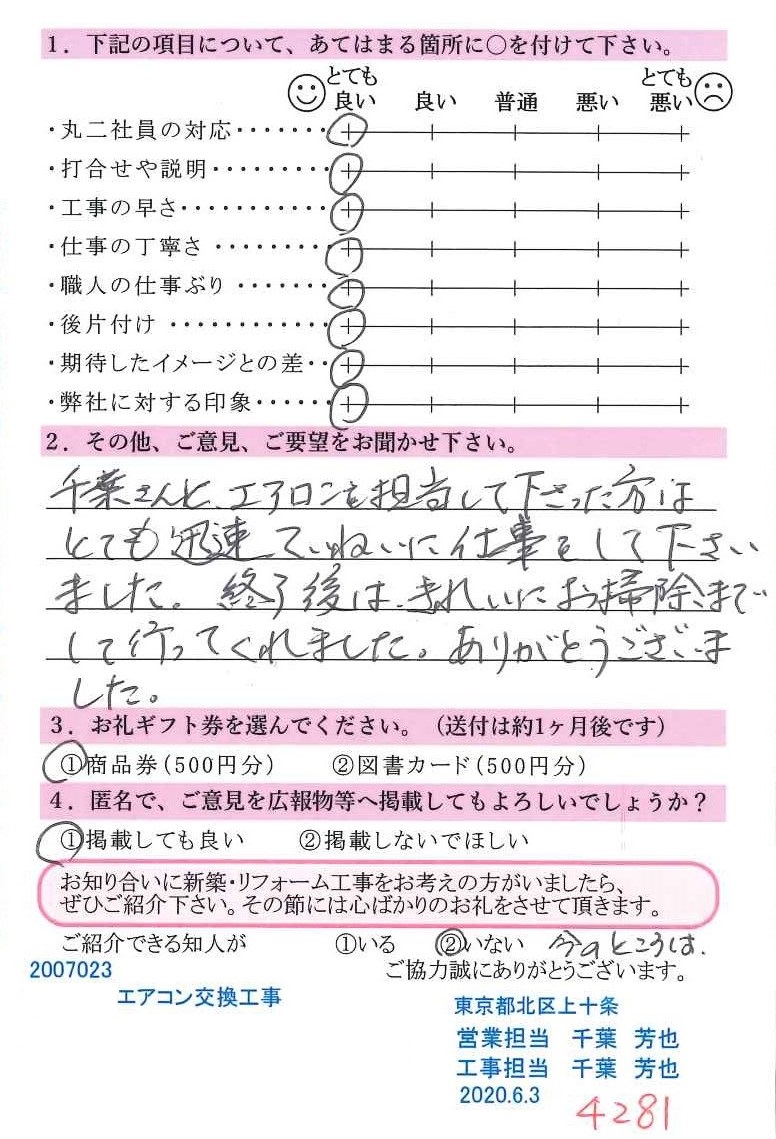 1．下記の項目について、あてはまる箇所に○を付けて下さい。
とても良い 良い 普通 悪い とても悪い
・丸二社員の対応･･･････
・打合せや説明･････････
・工事の早さ･･･････････
・仕事の丁寧さ ････････
・職人の仕事ぶり ･･･････
・後片付け ･･･････････
・期待したイメージとの差･･
・弊社に対する印象･･････
2．その他、ご意見、ご要望をお聞かせ下さい。
千葉さんと、エアコンを担当して下さった方は
とても迅速、ていねいに仕事をして下さい
ました。終了後は、きれいにお掃除まで
して行ってくれました。ありがとうございま
した。
3．お礼ギフト券を選んでください。（送付は約1ヶ月後です）
①商品券（500円分） ②図書カード（500円分）
4．匿名で、ご意見を広報物等へ掲載してもよろしいでしょうか？
①掲載しても良い ②掲載しないでほしい
お知り合いに新築・リフォーム工事をお考えの方がいましたら、
ぜひご紹介下さい。その節には心ばかりのお礼をさせて頂きます。
ご紹介できる知人が ①いる ②いない 今のところは、
2007023 ご協力誠にありがとうございます。
エアコン交換工事
東京都北区上十条
営業担当 千葉 芳也
工事担当 千葉 芳也
2020.6.3
4281